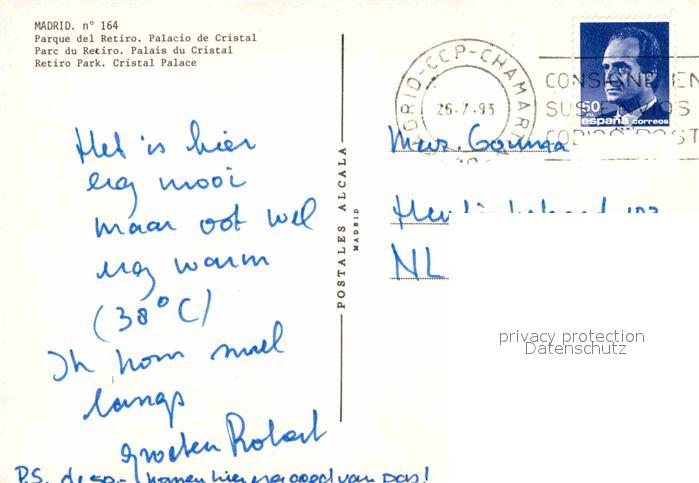 MADRID. nº 164
Parque del Retiro. Palacio de Cristal
Parc du Retiro. Palais du Cristal
Retiro Park. Cristal Palace
Het is hier
erg mooi
maar ook wel
erg warm
(38°C)
Ik kom snel
langs
Groeten Robert
P.S. de 50,- komen hier erg goed van pas!
POSTALES ALCALA
MADRID
MADRID-CCP-CHAMART
26-7-93
CONSIGNE EN
SUS ENVIOS
CODIGO POST
50
españa correos
Mevr.
NL
privacy protection
Datenschutz